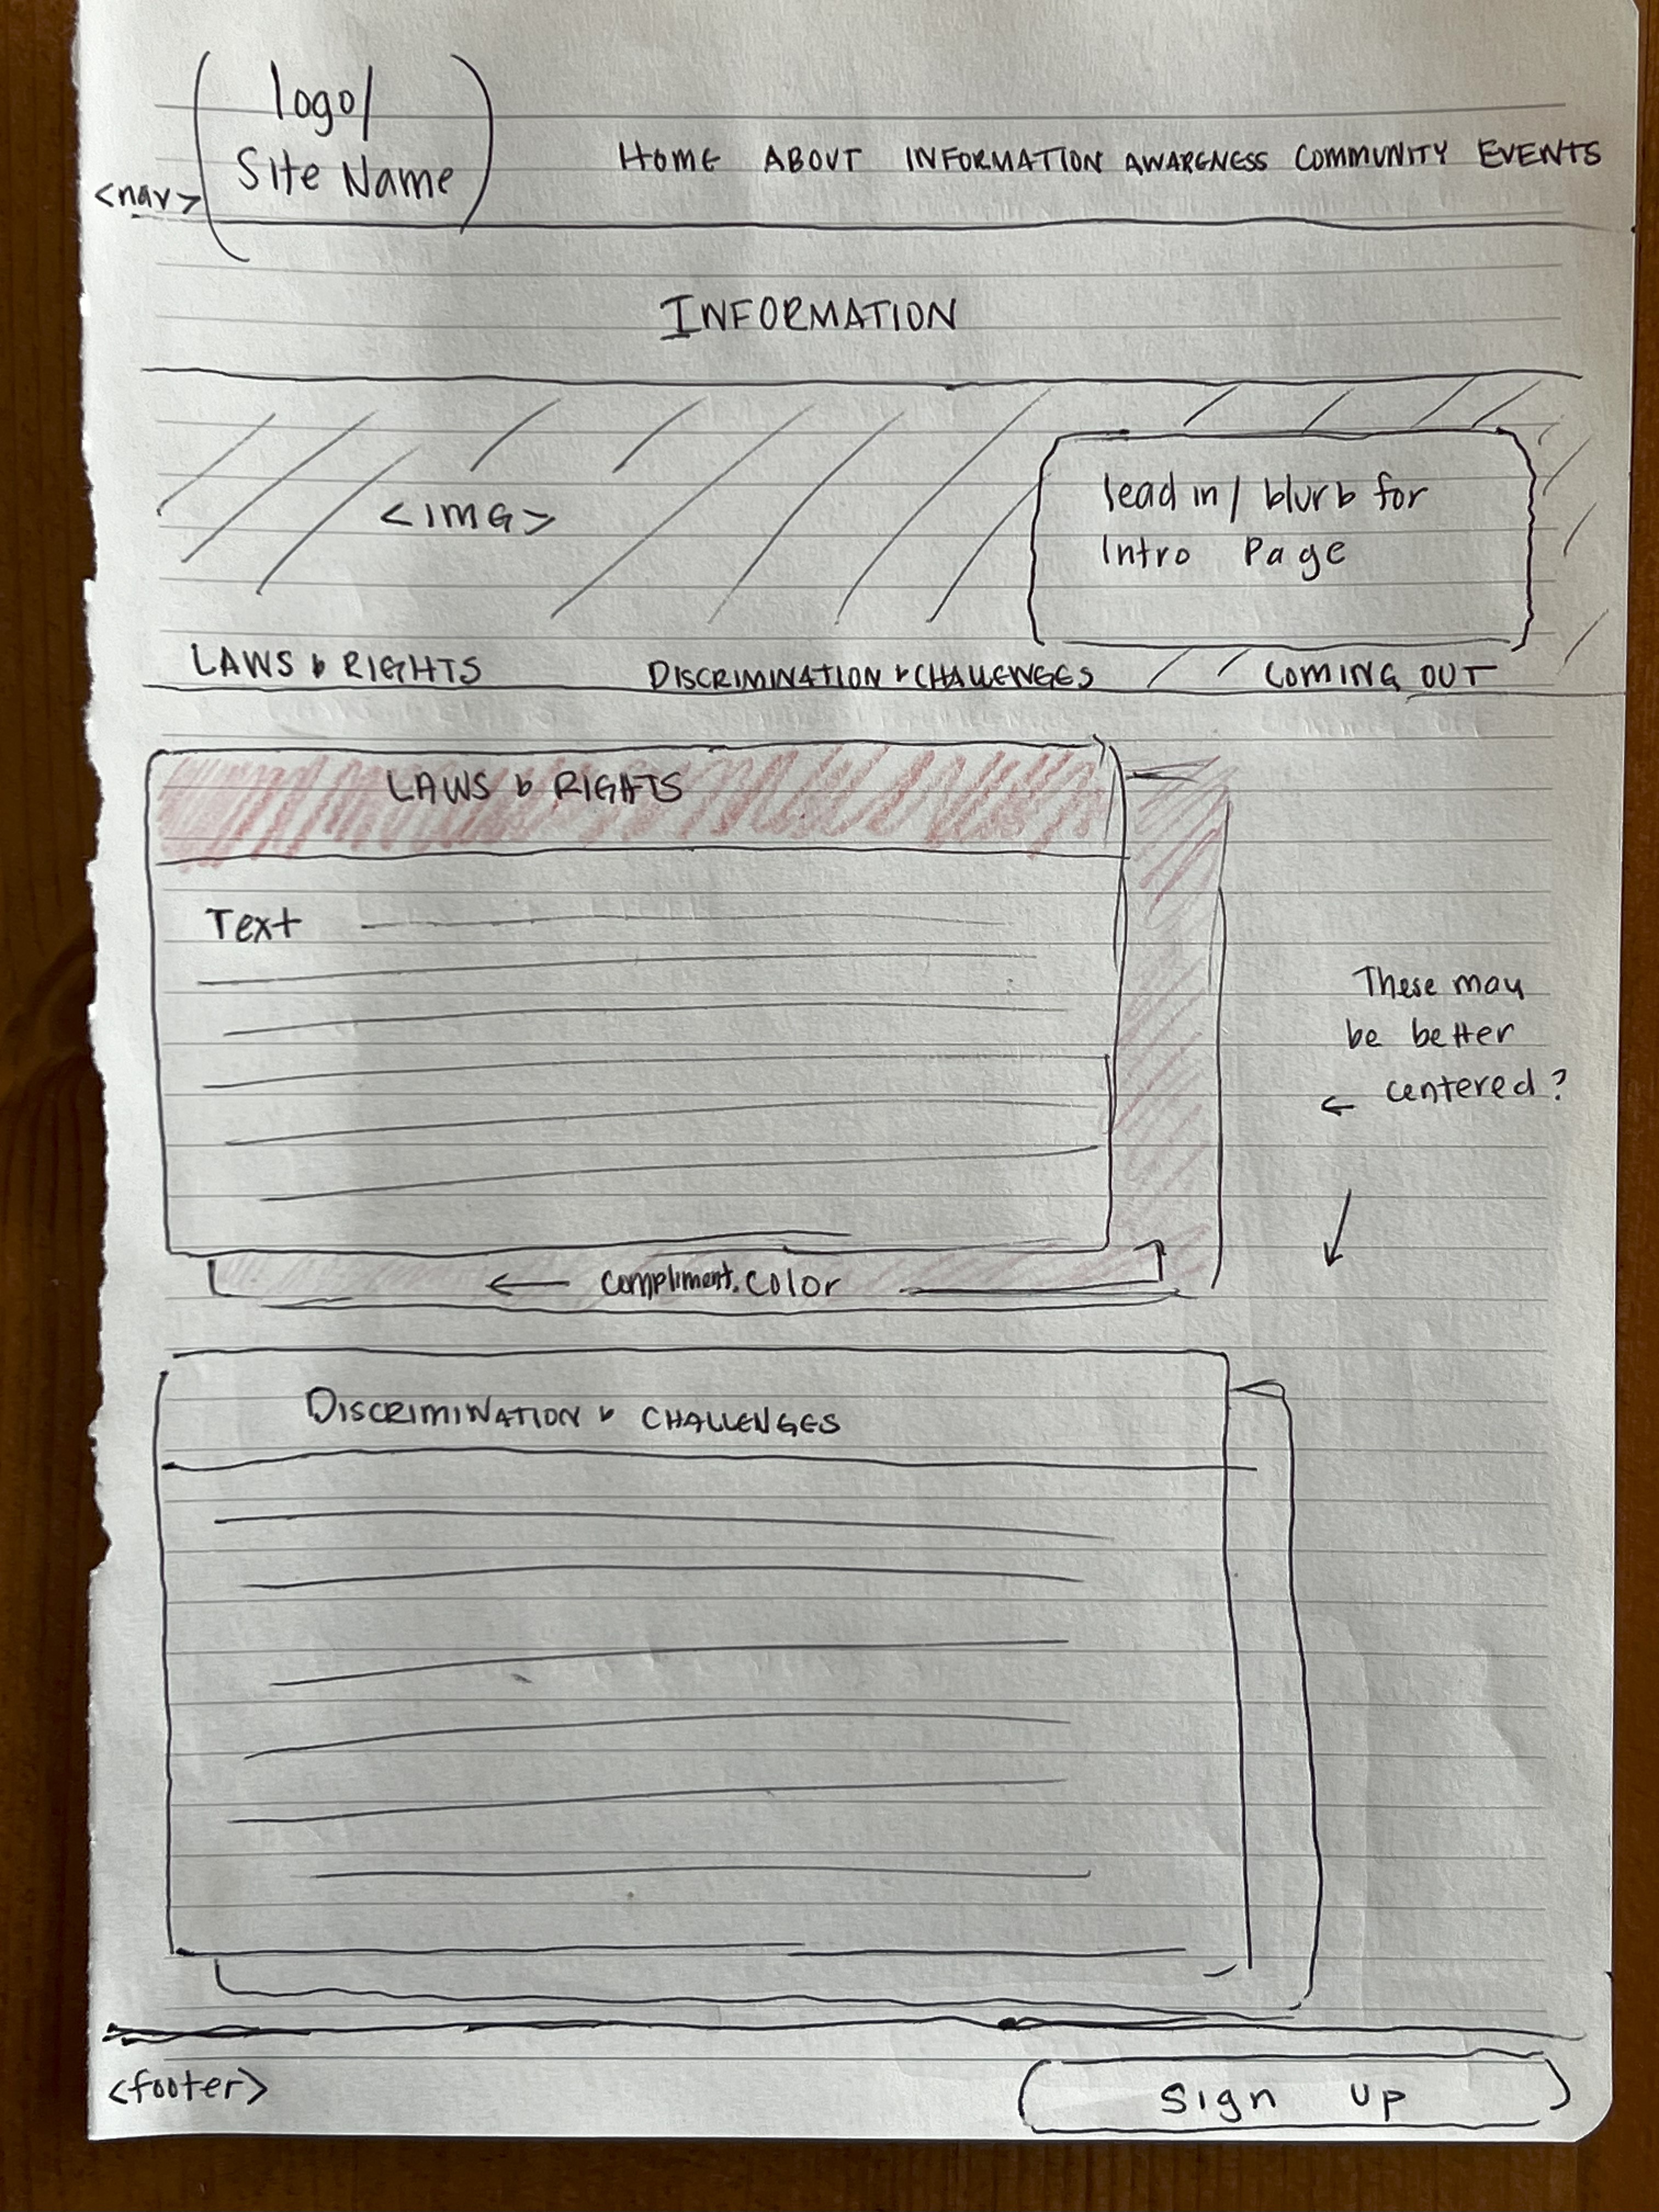 logo/
Site Name
<nav>
HOME ABOUT INFORMATION AWARENESS COMMUNITY EVENTS
INFORMATION
<IMG>
lead in / blurb for
Intro Page
LAWS & RIGHTS DISCRIMINATION & CHALLENGES COMING OUT
LAWS & RIGHTS
Text
These may
be better
← centered?
← compliment. color
DISCRIMINATION & CHALLENGES
<footer>
Sign up